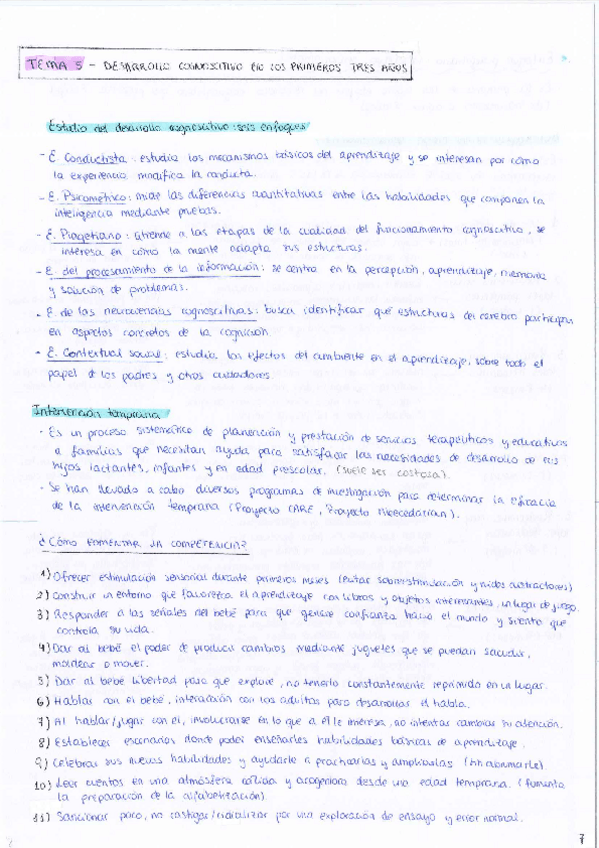 TEMA 5 - DESARROLLO COGNOSCITIVO EN LOS PRIMEROS TRES AÑOS
Estudio del desarrollo cognoscitivo: seis enfoques
- E. Conductista: estudia los mecanismos básicos del aprendizaje y se interesan por cómo
la experiencia modifica la conducta.
- E. Psicométrico: mide las diferencias cuantitativas entre las habilidades que componen la
inteligencia mediante pruebas.
- E. Piagetiano: atiende a las etapas de la cualidad del funcionamiento cognoscitivo, se
interesa en cómo la mente adapta sus estructuras.
- E. del procesamiento de la información: se centra en la percepción, aprendizaje, memoria
y solución de problemas.
- E. de las neurociencias cognoscitivas: busca identificar que estructuras del cerebro participan
en aspectos concretos de la cognición
- E. Contextual social: estudia los efectos del ambiente en el aprendizaje, sobre todo el
papel de los padres y otros cuidadores.
Intervención temprana
- Es un proceso sistemático de planeación y prestación de servicios terapéuticos y educativos
a familias que necesitan ayuda para satisfacer las necesidades de desarrollo de sus
hijos lactantes, infantes y en edad prescolar. (suele ser costosa).
- Se han llevado a cabo diversos programas de investigación para determinar la eficacia
de la intervención temprana (Proyecto CARE, Proyecto Abecedarian).
¿CÓMO FOMENTAR LA COMPETENCIA?
1) Ofrecer estimulación sensorial durante primeros meses (evitar sobreestimulación y ruidos distractores)
2) Construir un entorno que favorezca el aprendizaje con libros y objetos interesantes, un lugar de juego.
3) Responder a las señales del bebé para que genere confianza hacia el mundo y sienta que
controla su vida.
4) Dar al bebé el poder de producir cambios mediante juguetes que se puedan sacudir,
moldear o mover.
5) Dar al bebé libertad para que explore, no tenerlo constantemente reprimido en un lugar.
6) Hablar con el bebé, interacción con los adultos para desarrollar el habla.
7) Al hablar/jugar con él, involucrarse en lo que a él le interesa, no intentar cambiar su atención.
8) Establecer escenarios donde poder enseñarles habilidades básicas de aprendizaje.
9) Celebrar sus nuevas habilidades y ayudarle a practicarlas y ampliarlas
10) Leer cuentos en una atmósfera cálida y acogedora desde una edad temprana. (fomenta
la preparación de la alfabetización).
11) Sancionar poco, no castigar/ridiculizar por una exploración de ensayo y error normal.
7